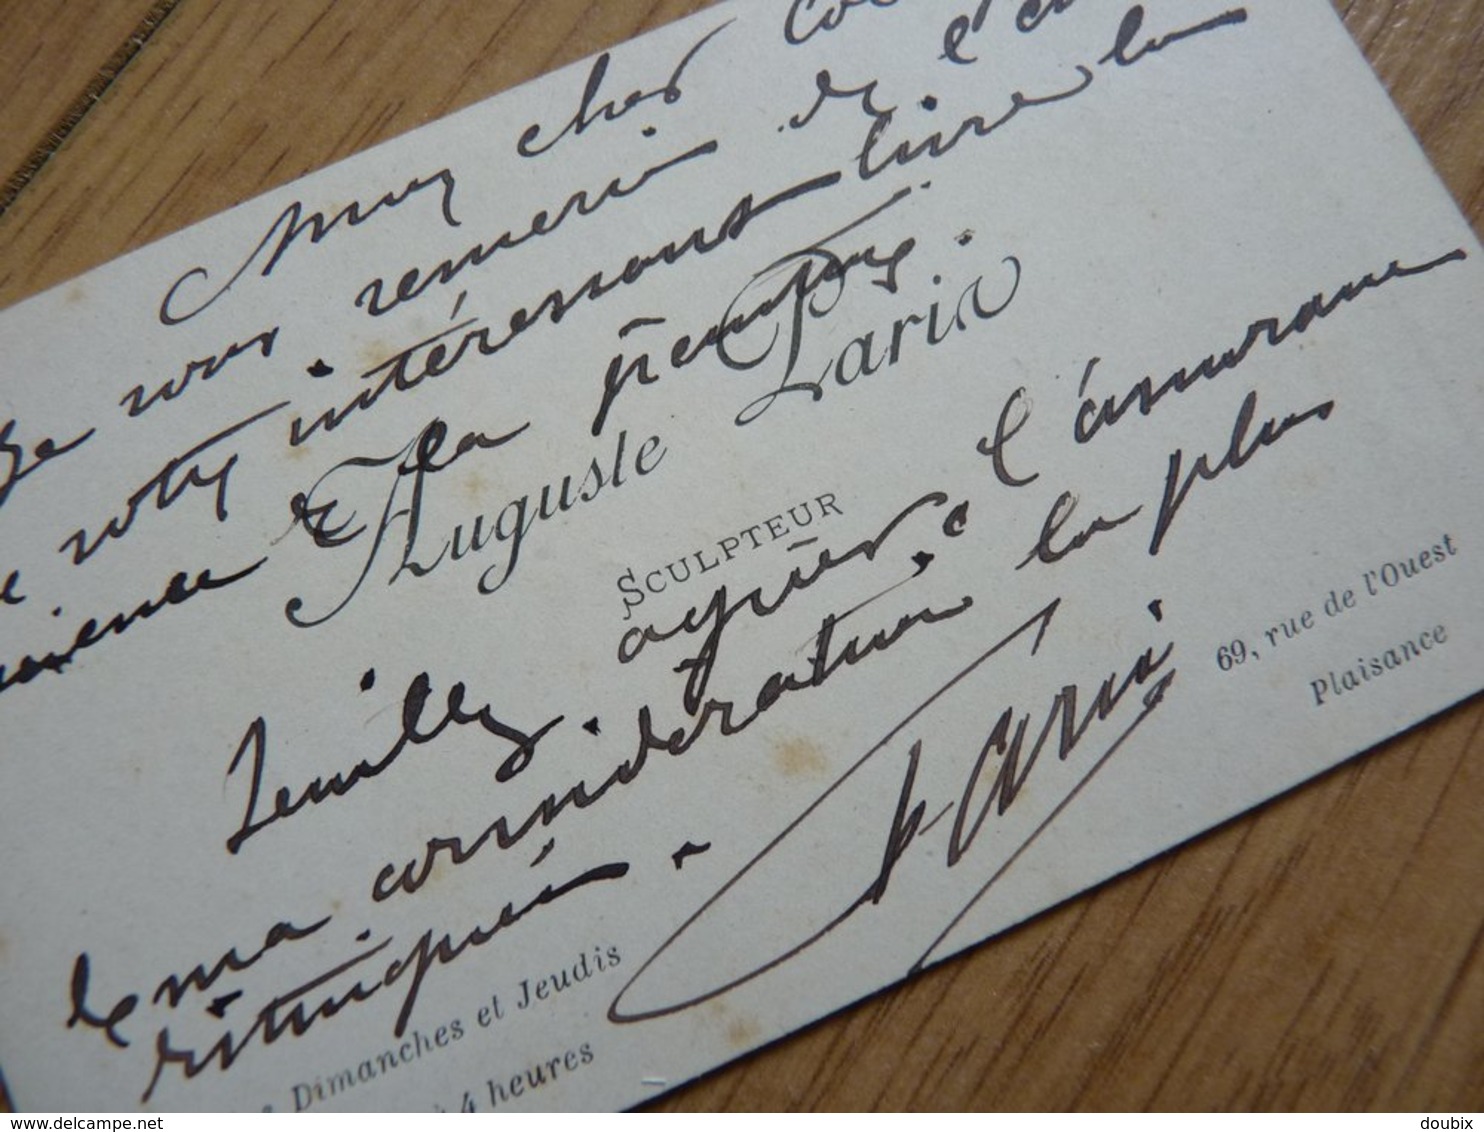 mon cher
Je vous remercie de l'
votre intéressant livre la
science & la peinture.
Auguste Paris
Sculpteur
Veuillez agréer l'assurance
de ma considération la plus
distinguée.
Paris
69, rue de l'Ouest
Plaisance
Dimanches et Jeudis
à 4 heures
www.delcampe.net
doubix